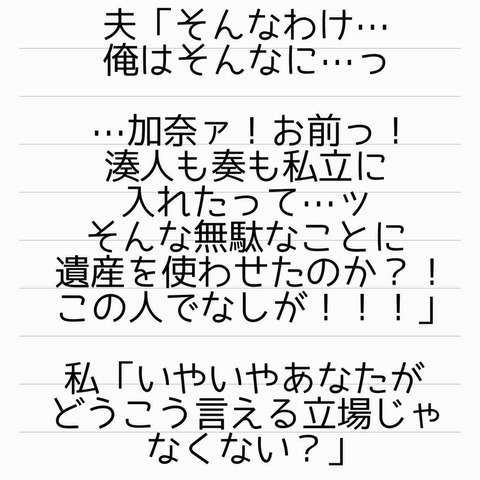 夫「そんなわけ…
俺はそんなに…っ
…加奈ァ！お前っ！
湊人も奏も私立に
入れたって…ッ
そんな無駄なことに
遺産を使わせたのか？！
この人でなしが！！！」
私「いやいやあなたが
どうこう言える立場じゃ
なくない？」